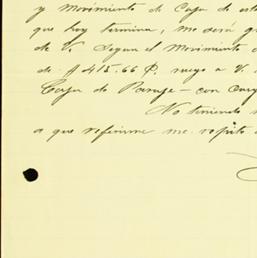 y movimiento de Caja de este
que hoy termina, me será gr
de V. Segun el movimiento a
de $ 415.66 P. ruego a V. s
Caja de Parage - con carg
No teniendo
a que referirme me repito d